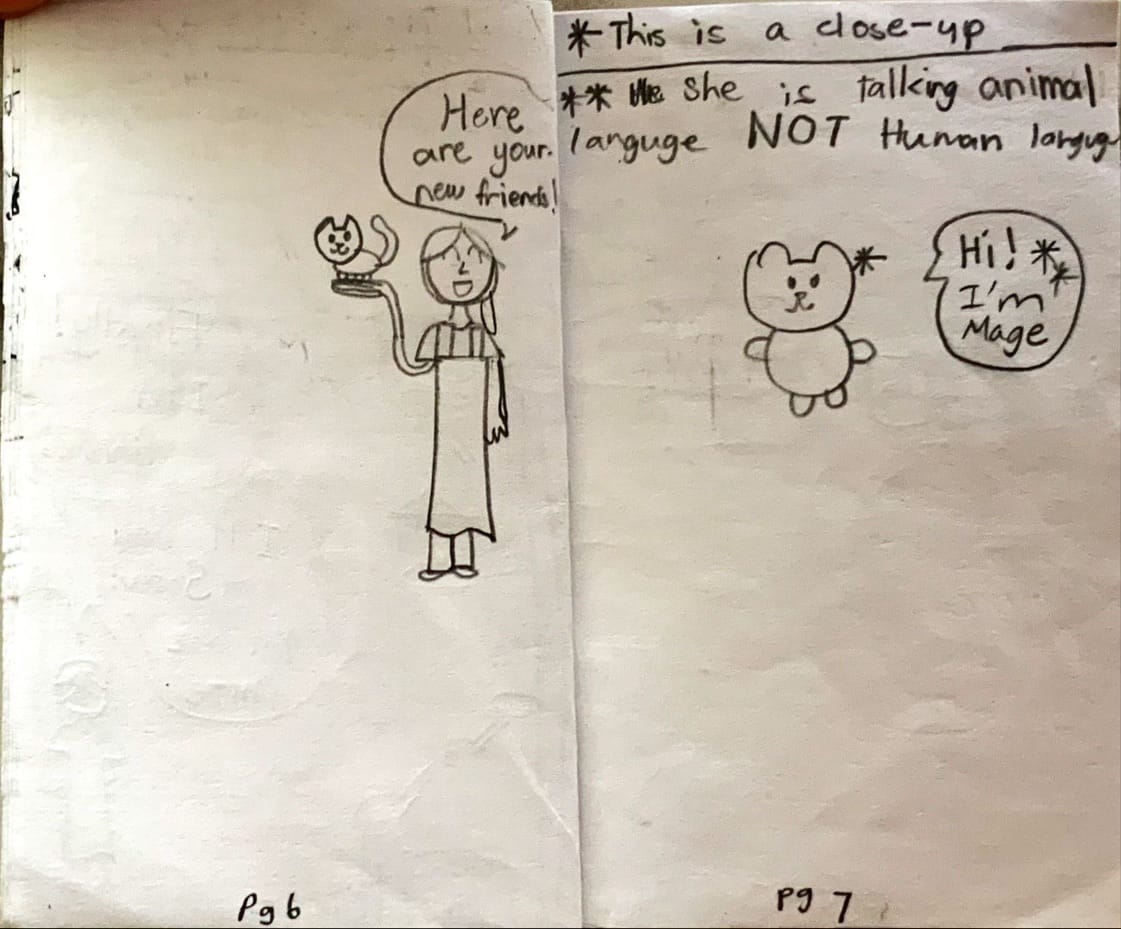 Here
are your
new friends!
Pg 6
* This is a close-up
** She is talking animal
languge NOT Human
Hi! *
*
I'm
Mage
pg 7